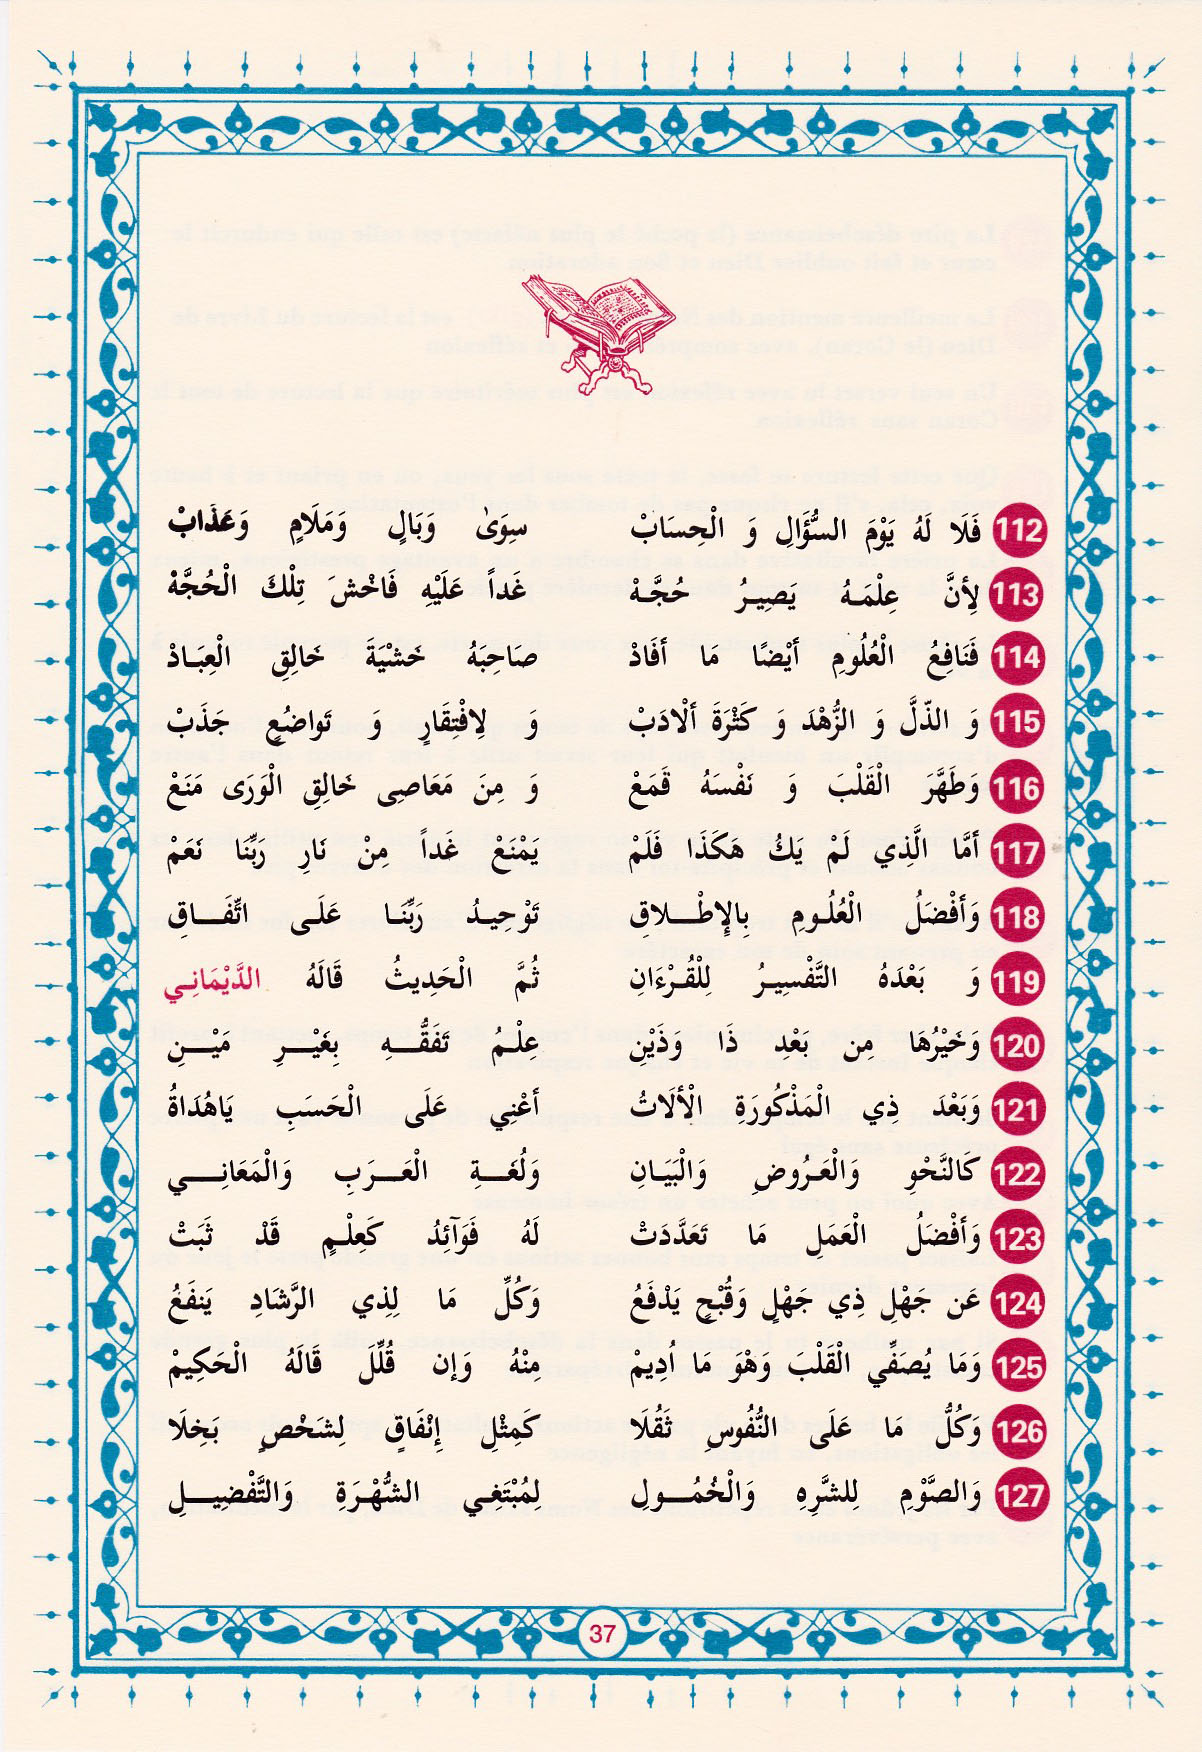 112 فَلَا لَهُ يَوْمَ السُّؤَالِ وَ الْحِسَابْ سِوٰى وَبَالٍ وَمَلَامٍ وَعَذَابْ
113 لِأَنَّ عِلْمَهُ يَصِيرُ حُجَّهْ غَداً عَلَيْهِ فَاخْشَ تِلْكَ الْحُجَّهْ
114 فَنَافِعُ الْعُلُومِ أَيْضًا مَا أَفَادْ صَاحِبَهُ خَشْيَةَ خَالِقِ الْعِبَادْ
115 وَ الذّلَّ وَ الزُّهْدَ وَ كَثْرَةَ ألْادَبْ وَ لِافْتِقَارٍ وَ تَواضُعٍ جَذَبْ
116 وَطَهَّرَ الْقَلْبَ وَ نَفْسَهُ قَمَعْ وَ مِنَ مَعَاصِى خَالِقِ الْوَرَى مَنَعْ
117 أمَّا الَّذِي لَمْ يَكُ هَكَذَا فَلَمْ يَمْنَعْ غَداً مِنْ نَارِ رَبِّنَا نَعَمْ
118 وَأَفْضَلُ الْعُلُومِ بِالإِطْلاقِ تَوْحِيدُ رَبِّنَا عَلَى اتِّفَاقِ
119 وَ بَعْدَهُ التَّفْسِيرُ لِلْقُرْءَانِ ثُمَّ الْحَدِيثُ قَالَهُ الدَّيْمَانِي
120 وَخَيْرُهَا مِن بَعْدِ ذَا وَذَيْنِ عِلْمُ تَفَقُّهِ بِغَيْرِ مَيْنِ
121 وَبَعْدَ ذِي الْمَذْكُورَةِ الْألَاتُ أعْنِي عَلَى الْحَسَبِ يَاهُدَاةُ
122 كَالنَّحْوِ وَالْعَرُوضِ وَالْبَيَانِ وَلُغَةِ الْعَرَبِ وَالْمَعَانِي
123 وَأَفْضَلُ الْعَمَلِ مَا تَعَدَّدَتْ لَهُ فَوَآئِدُ كَعِلْمٍ قَدْ ثَبَتْ
124 عَن جَهْلِ ذِي جَهْلٍ وَقُبْحٍ يَدْفَعُ وَكُلِّ مَا لِذِي الرَّشَادِ يَنفَعُ
125 وَمَا يُصَفِّي الْقَلْبَ وَهْوَ مَا اُدِيمْ مِنْهُ وَإن قُلِّلَ قَالَهُ الْحَكِيمْ
126 وَكُلُّ مَا عَلَى النُّفُوسِ ثَقُلَا كَمِثْلِ إِنْفَاقٍ لِشَخْصٍ بَخِلَا
127 وَالصَّوْمِ لِلشَّرِهِ وَالْخُمُولِ لِمُبْتَغِي الشُّهْرَةِ وَالتَّفْضِيلِ
37